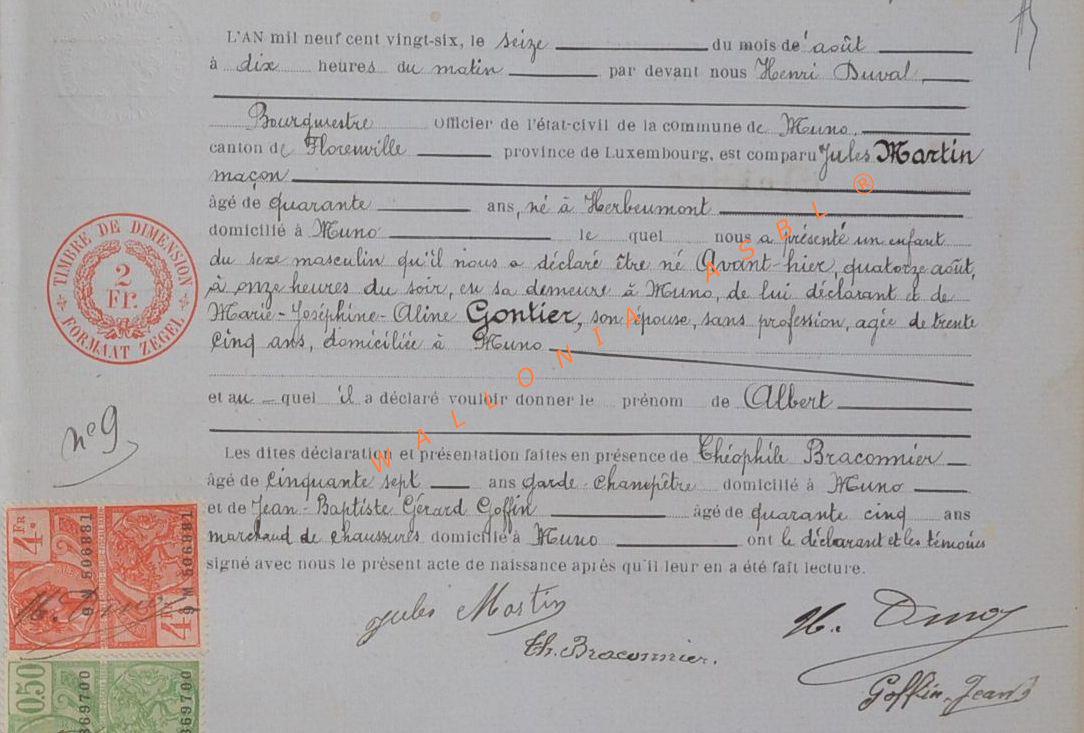 L'AN mil neuf cent vingt-six, le seize du mois de août
à dix heures du matin par devant nous Henri Duval,
Bourgmestre Officier de l'état-civil de la commune de Muno,
canton de Florenville province de Luxembourg, est comparu Jules Martin
maçon
âgé de quarante ans, né à Herbeumont
domicilié à Muno le quel nous a présenté un enfant
du sexe masculin qu'il nous a déclaré être né Avant-hier, quatorze août,
à onze heures du soir, en sa demeure à Muno, de lui déclarant et de
Marie-Joséphine-Aline Gontier, son épouse, sans profession, agée de trente
cinq ans, domiciliée à Muno
et au quel il a déclaré vouloir donner le prénom de Albert
Les dites déclaration et présentation faites en présence de Théophile Braconnier
âgé de cinquante sept ans garde-champêtre domicilié à Muno
et de Jean-Baptiste Gérard Goffin âgé de quarante cinq ans
marchand de chaussures domicilié à Muno ont le déclarant et les témoins
signé avec nous le présent acte de naissance après qu'il leur en a été fait lecture.
Jules Martin
Th. Braconnier.
H. Duval
Goffin-Jean B
TIMBRE DE DIMENSION
2
FR.
FORMAAT ZEGEL
n° 9
4 FR
9 M 506881
9 M 506881
4 FR
0.50
369700
369700
WALLONIA ASBL ®